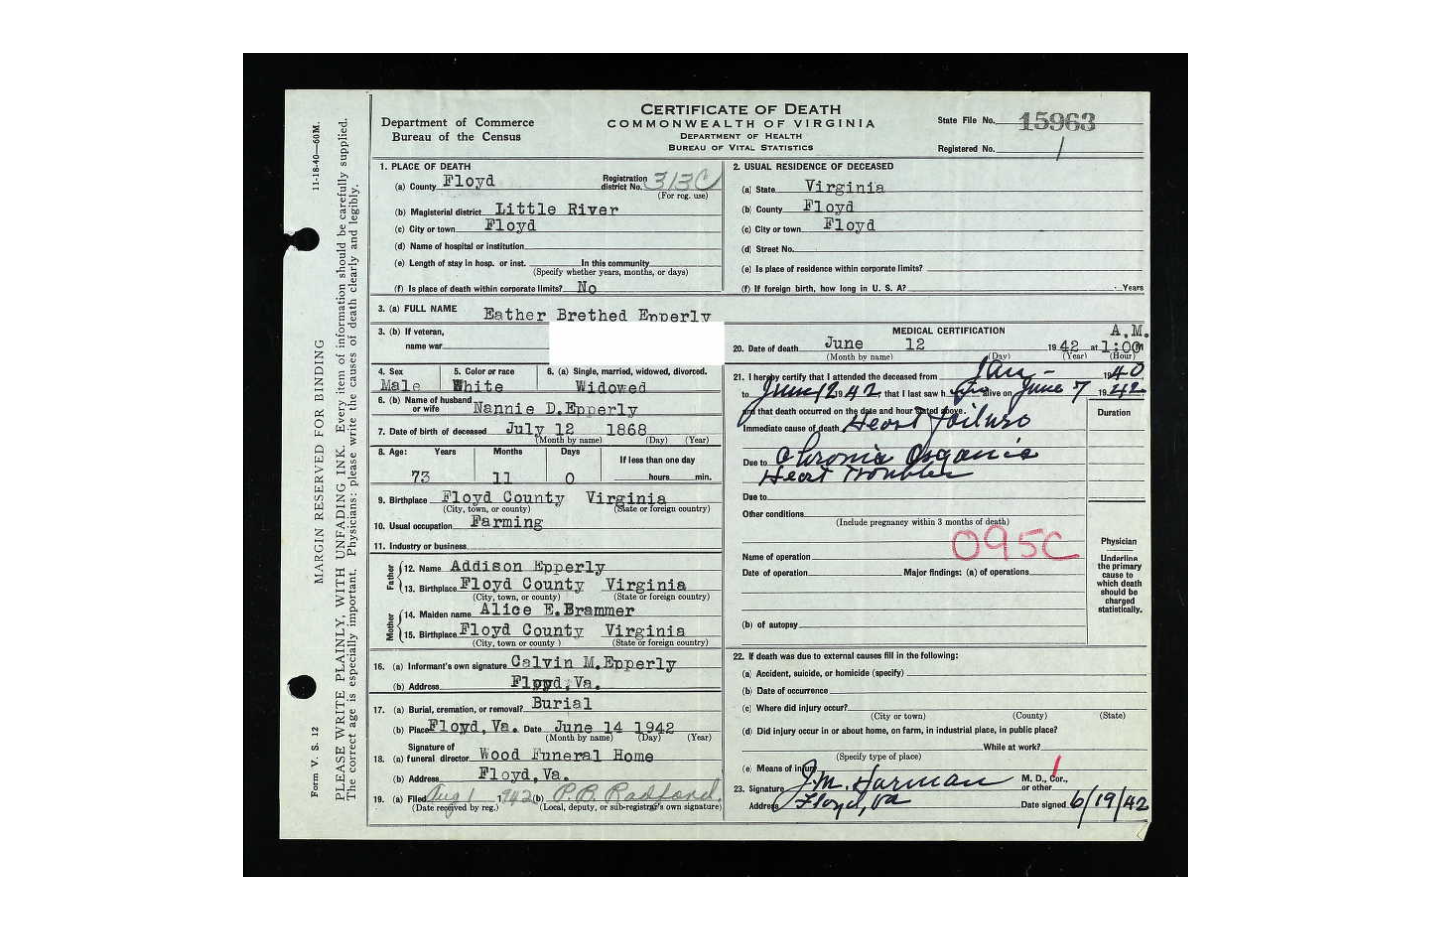 CERTIFICATE OF DEATH
COMMONWEALTH OF VIRGINIA
DEPARTMENT OF HEALTH
BUREAU OF VITAL STATISTICS
Department of Commerce
Bureau of the Census
State File No. 15963
Registered No. 1
11-18-40—60M.
MARGIN RESERVED FOR BINDING
Form V. S. 12
PLEASE WRITE PLAINLY, WITH UNFADING INK. Every item of information should be carefully supplied.
The correct age is especially important. Physicians: please write the causes of death clearly and legibly.
1. PLACE OF DEATH
(a) County Floyd Registration district No. 313C
(For reg. use)
(b) Magisterial district Little River
(c) City or town Floyd
(d) Name of hospital or institution
(e) Length of stay in hosp. or inst. In this community
(Specify whether years, months, or days)
(f) Is place of death within corporate limits? No
2. USUAL RESIDENCE OF DECEASED
(a) State Virginia
(b) County Floyd
(c) City or town Floyd
(d) Street No.
(e) Is place of residence within corporate limits?
(f) If foreign birth, how long in U. S. A? Years
3. (a) FULL NAME Eather Brethed Epperly
3. (b) If veteran,
name war
4. Sex 5. Color or race 6. (a) Single, married, widowed, divorced.
Male White Widowed
6. (b) Name of husband or wife Nannie D.Epperly
7. Date of birth of deceased July 12 1868
(Month by name) (Day) (Year)
8. Age: Years Months Days If less than one day
73 11 0 hours min.
9. Birthplace Floyd County Virginia
(City, town, or county) (State or foreign country)
10. Usual occupation Farming
11. Industry or business
Father
12. Name Addison Epperly
13. Birthplace Floyd County Virginia
(City, town, or county) (State or foreign country)
Mother
14. Maiden name Alice E.Brammer
15. Birthplace Floyd County Virginia
(City, town or county ) (State or foreign country)
16. (a) Informant's own signature Calvin M.Epperly
(b) Address Floyd,Va.
17. (a) Burial, cremation, or removal? Burial
(b) Place Floyd,Va. Date June 14 1942
(Month by name) (Day) (Year)
18. (a) Signature of funeral director Wood Funeral Home
(b) Address Floyd,Va.
19. (a) Filed Aug 1 1942 (b) P.B. Radford.
(Date received by reg.) (Local, deputy, or sub-registrar's own signature)
MEDICAL CERTIFICATION
20. Date of death June 12 1942 at 1:00 A.M.
(Month by name) (Day) (Year) (Hour)
21. I hereby certify that I attended the deceased from Jan - 1940
to June 12 1942, that I last saw h alive on June 7 1942
and that death occurred on the date and hour stated above.
Duration
Immediate cause of death Heart failure
Due to Chronic Organic
Heart Trouble
Due to
Other conditions
(Include pregnancy within 3 months of death)
095C
Name of operation
Date of operation Major findings: (a) of operations
(b) of autopsy
Physician
Underline
the primary
cause to
which death
should be
charged
statistically.
22. If death was due to external causes fill in the following:
(a) Accident, suicide, or homicide (specify)
(b) Date of occurrence
(c) Where did injury occur?
(City or town) (County) (State)
(d) Did injury occur in or about home, on farm, in industrial place, in public place?
While at work?
(Specify type of place)
(e) Means of injury
23. Signature J.M. Harman M. D., Cor., or other 1
Address Floyd, Va Date signed 6/19/42